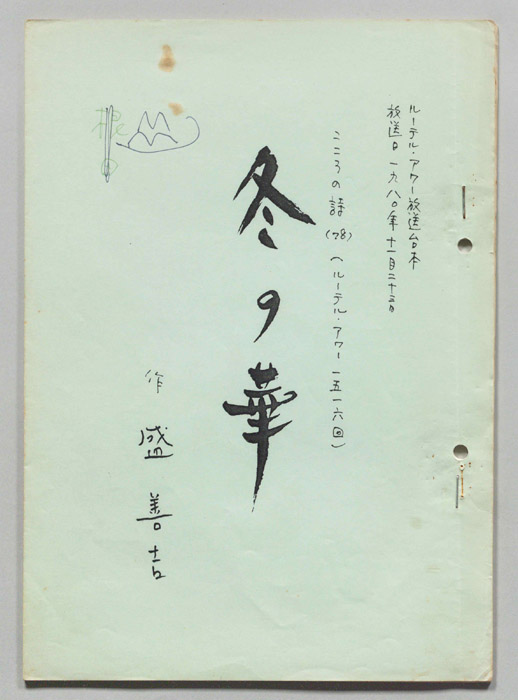 ルーテル・アワー放送台本
放送日 一九八〇年 十一月二十三日
こころの詩 (78) (ルーテル・アワー 一五一六回)
冬の華
作 盛善吉